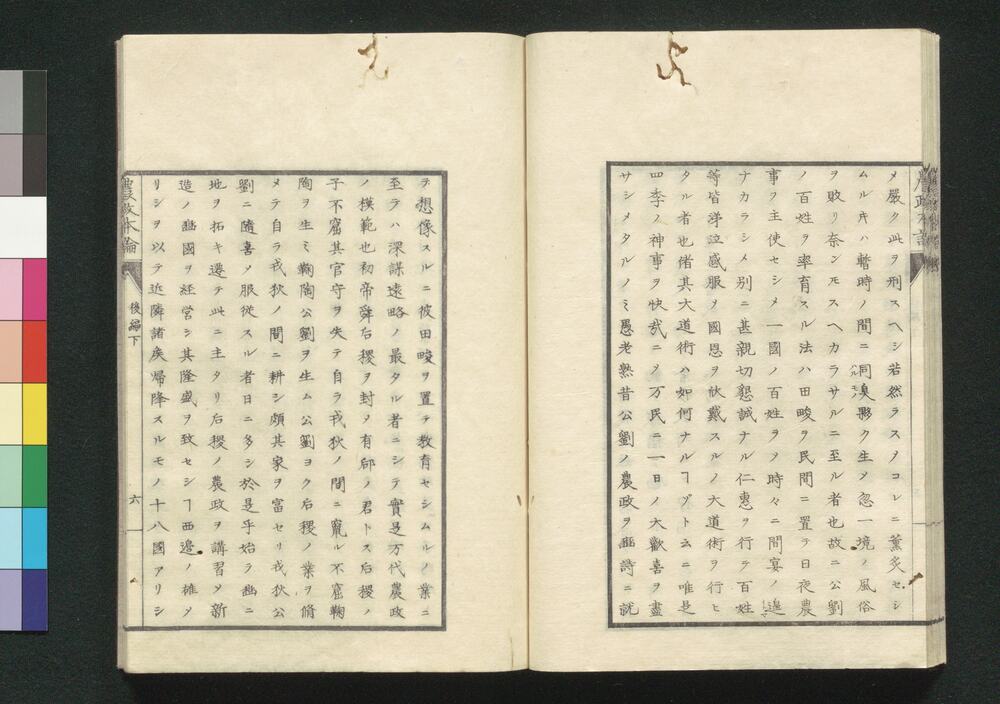 メ嚴ク此ヲ刑スヘシ若然ラスノコレニ薫炙セシ
ムルキハ暫時ノ間ニ洞溴夥ク生ノ忽一境ノ風俗
ヲ敗リ奈ンモスヘカラサルニ至ル者也故ニ公劉
ノ百姓ヲ率育スル法ハ田畯ヲ民間ニ置テ日夜農
事ヲ主使セシメ一國ノ百姓ヲヲ時々ニ間宴ノ遑
ナカラシメ別ニ甚親切懇誠ナル仁惠ヲ行テ百姓
等皆涕泣感服メ國恩ヲ伏戴スルノ大道術ヲ行ヒ
タル者也偖其大道術ハ如何ナルヿゾト云ニ唯是
四季ノ神事ヲ快哉ニメ万民ニ一日ノ大歡喜ヲ盡
サシメタルノミ愚老熟昔公劉ノ農政ヲ豳詩ニ就
テ想像スルニ彼田畯ヲ置テ教育セシムルノ業ニ
至テハ深謀遠略ノ最タル者ニシテ實是万代農政
ノ模範也初帝舜后稷ヲ封メ有邰ノ君トス后稷ノ
子不窟其官守ヲ失テ自ラ戎狄ノ間ニ竄ル不窟鞠
陶ヲ生ミ鞠陶公劉ヲ生ム公劉ヨク后稷ノ業ヲ脩
メテ自ラ戎狄ノ間ニ耕シ頗其家ヲ富セリ戎狄公
劉ニ隨喜メ服從スル者日ニ多シ於是乎始テ豳ニ
地ヲ拓キ遷テ此ニ主タリ后稷ノ農政ヲ講習メ新
造ノ豳國ヲ経営シ其隆盛ヲ致セシヿ西邊ノ雄タ
リシヲ以テ近隣諸矦帰降スルモノ十八國アリシ
農政本論
後編下
六